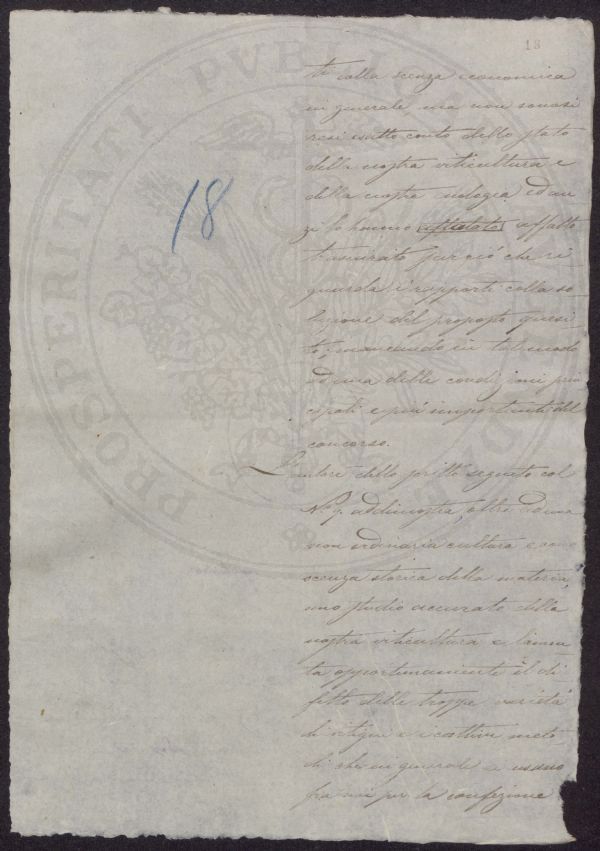 18
18
ti dalla scienza economica
in generale, ma non sonosi
resi esatto conto dello stato
della nostra viticultura e
della nostra enologia, ed an
zi lo hanno affatto
trascurato per ciò che ri
guarda i rapporti colla so
luzione del proposto quesi
to, mancando in tal modo
ad una delle condizioni prin
cipali e più importanti del
concorso.
L'autore dello scritto segnato col
N.º 7. addimostra, oltre ad una
non ordinaria cultura e cono
scenza storica della materia,
uno studio accurato della
nostra viticultura e lamen
ta opportunamente il di
fetto delle troppe varietà
di vitigni e i cattivi meto
di che in generale si usano
fra noi per la confezione
PROSPERITATI PVBLICAE